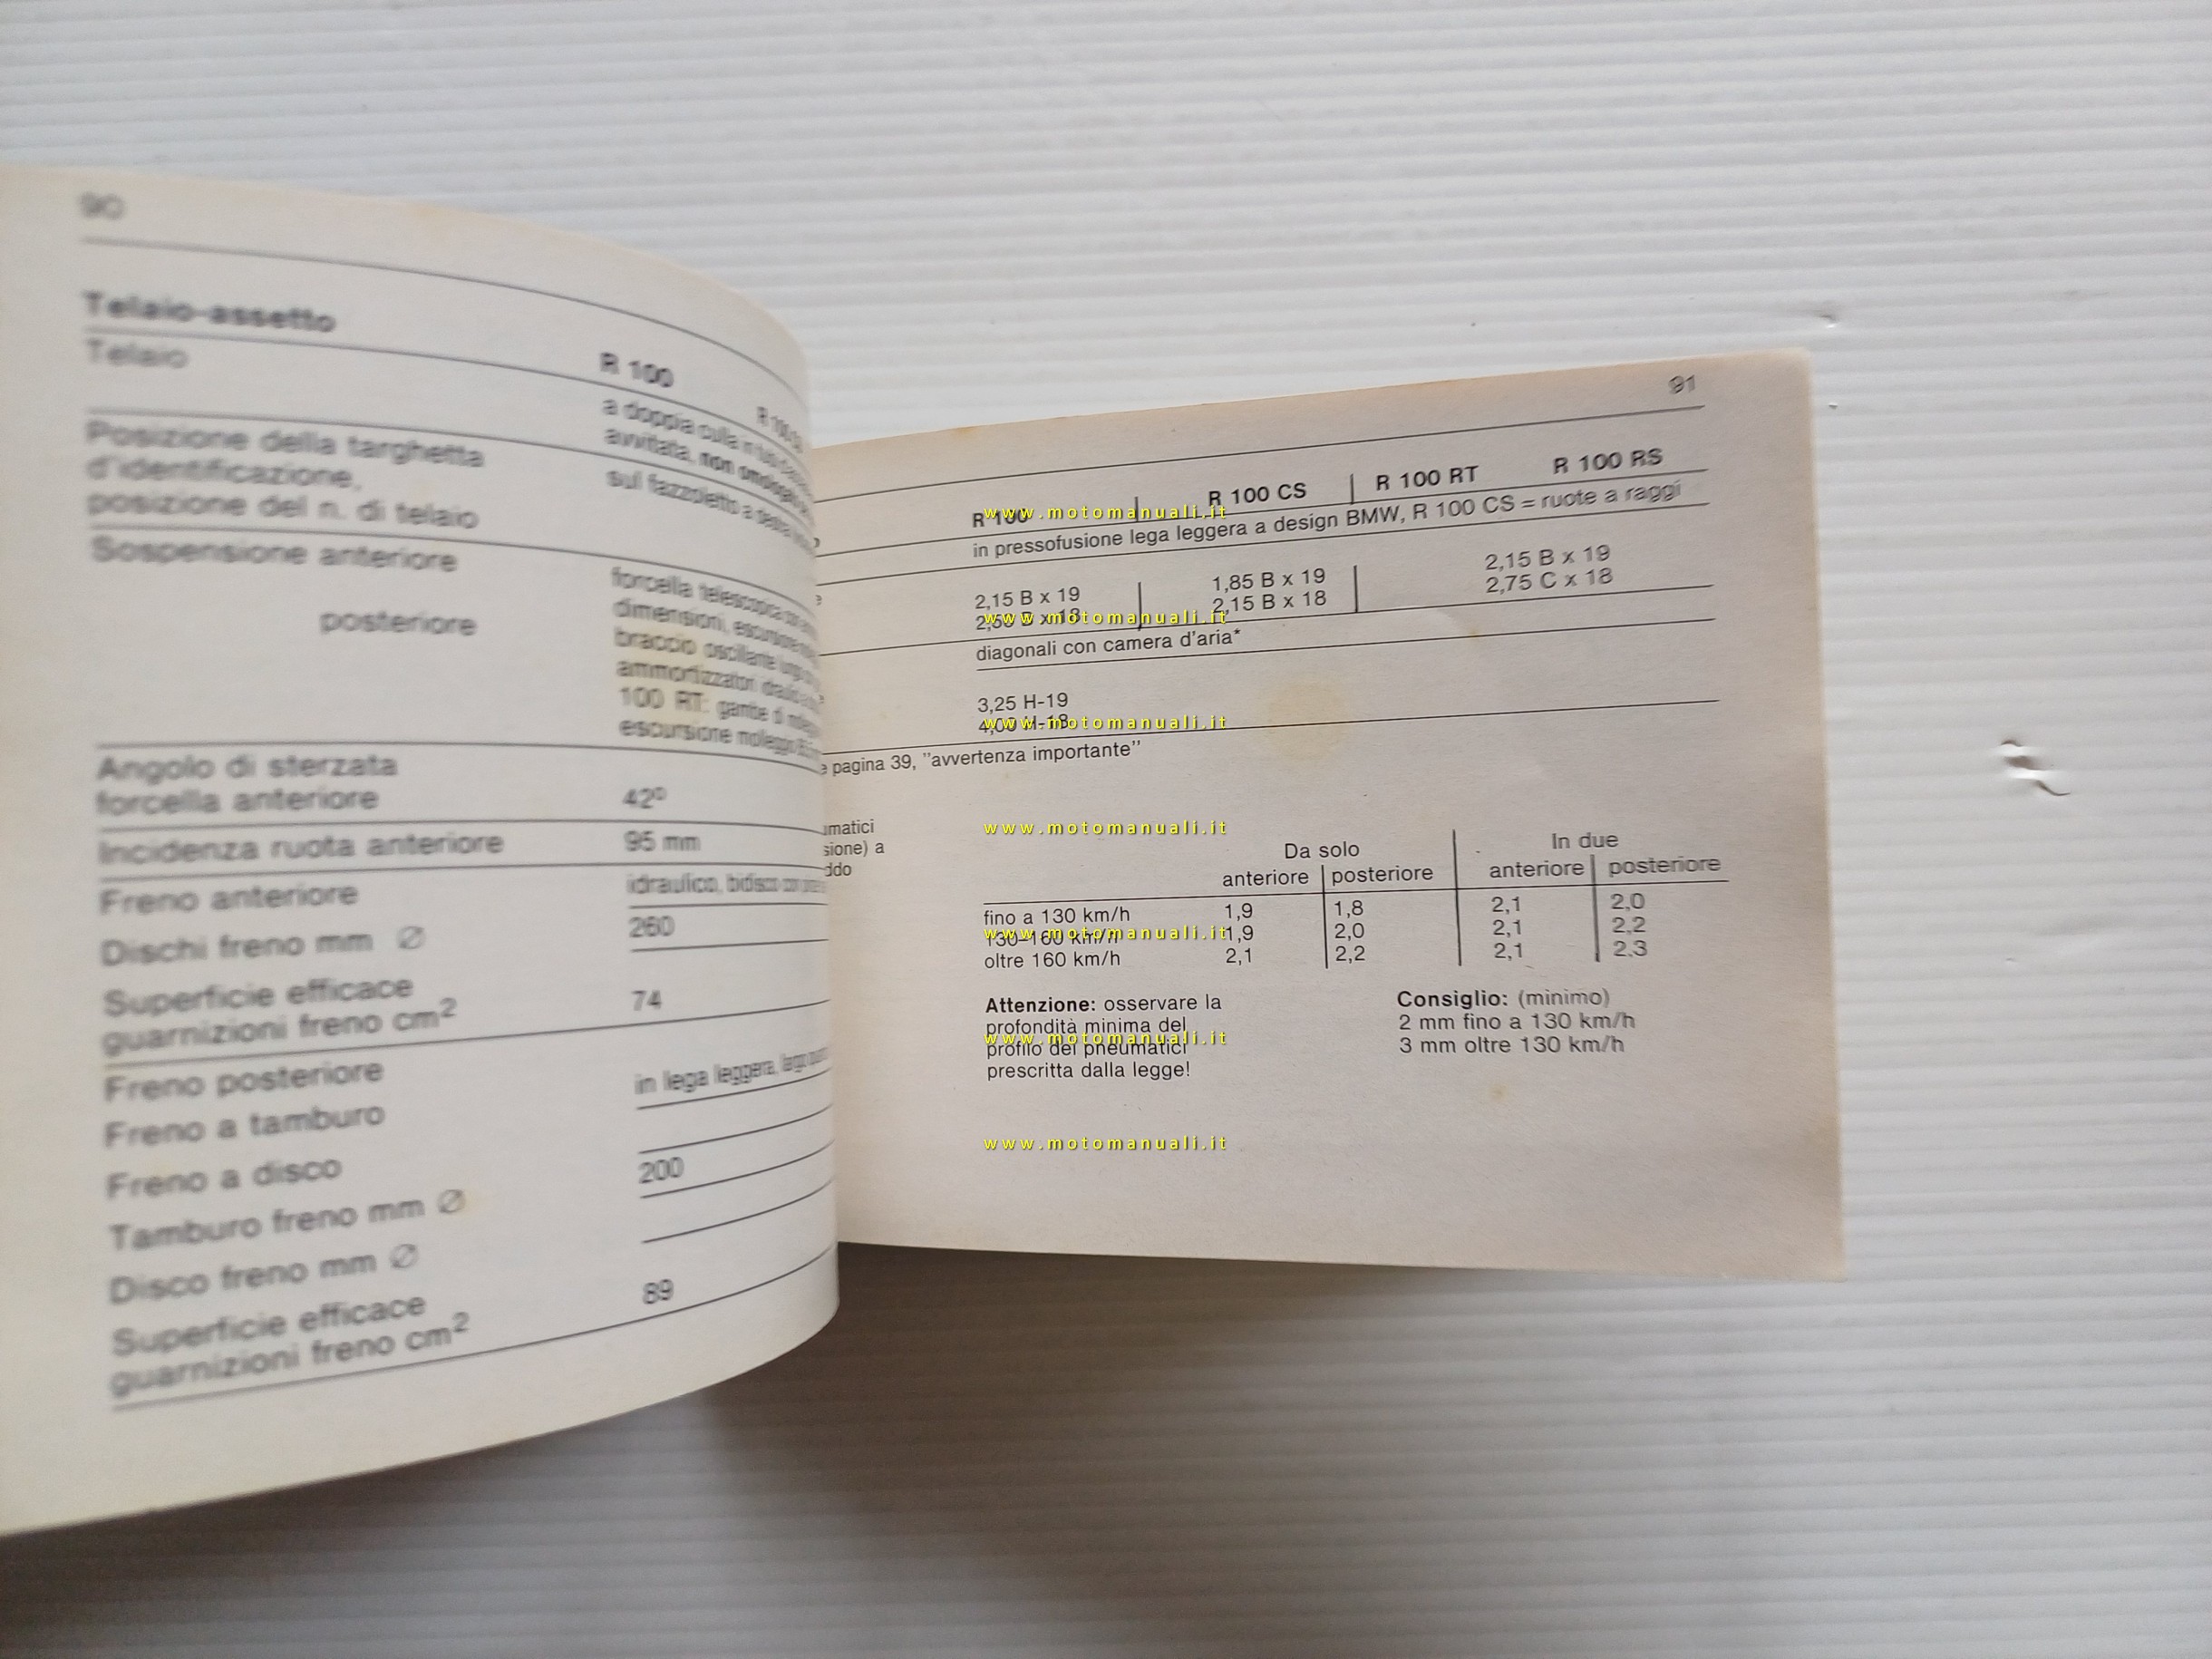 90
Telaio-assetto
R 100
Telaio
a doppia culla
avvitata, non
Posizione della targhetta
d'identificazione,
posizione del n. di telaio
sul fazzoletto a
Sospensione anteriore
forcella telescopica
dimensioni, escursione
posteriore
braccio oscillante
ammortizzatori
100 RT: gambe di
escursione molleggio
Angolo di sterzata
forcella anteriore
42º
Incidenza ruota anteriore
95 mm
Freno anteriore
idraulico, bidisco
Dischi freno mm Ø
260
Superficie efficace
guarnizioni freno cm2
74
Freno posteriore
in lega leggera,
Freno a tamburo
Freno a disco
200
Tamburo freno mm Ø
Disco freno mm Ø
Superficie efficace
guarnizioni freno cm2
89
91
R 100 R 100 CS R 100 RT R 100 RS
www.motomanuali.it
in pressofusione lega leggera a design BMW, R 100 CS = ruote a raggi
2,15 B x 19 1,85 B x 19 2,15 B x 19
2,50 B x 18 2,15 B x 18 2,75 C x 18
www.motomanuali.it
diagonali con camera d'aria*
3,25 H-19
4,00 H-18
www.motomanuali.it
e pagina 39, "avvertenza importante"
www.motomanuali.it
matici
sione) a
ddo
Da solo In due
anteriore posteriore anteriore posteriore
fino a 130 km/h 1,9 1,8 2,1 2,0
130–160 km/h 1,9 2,0 2,1 2,2
www.motomanuali.it
oltre 160 km/h 2,1 2,2 2,1 2.3
Attenzione: osservare la
profondità minima del
www.motomanuali.it
profilo dei pneumatici
prescritta dalla legge!
Consiglio: (minimo)
2 mm fino a 130 km/h
3 mm oltre 130 km/h
www.motomanuali.it